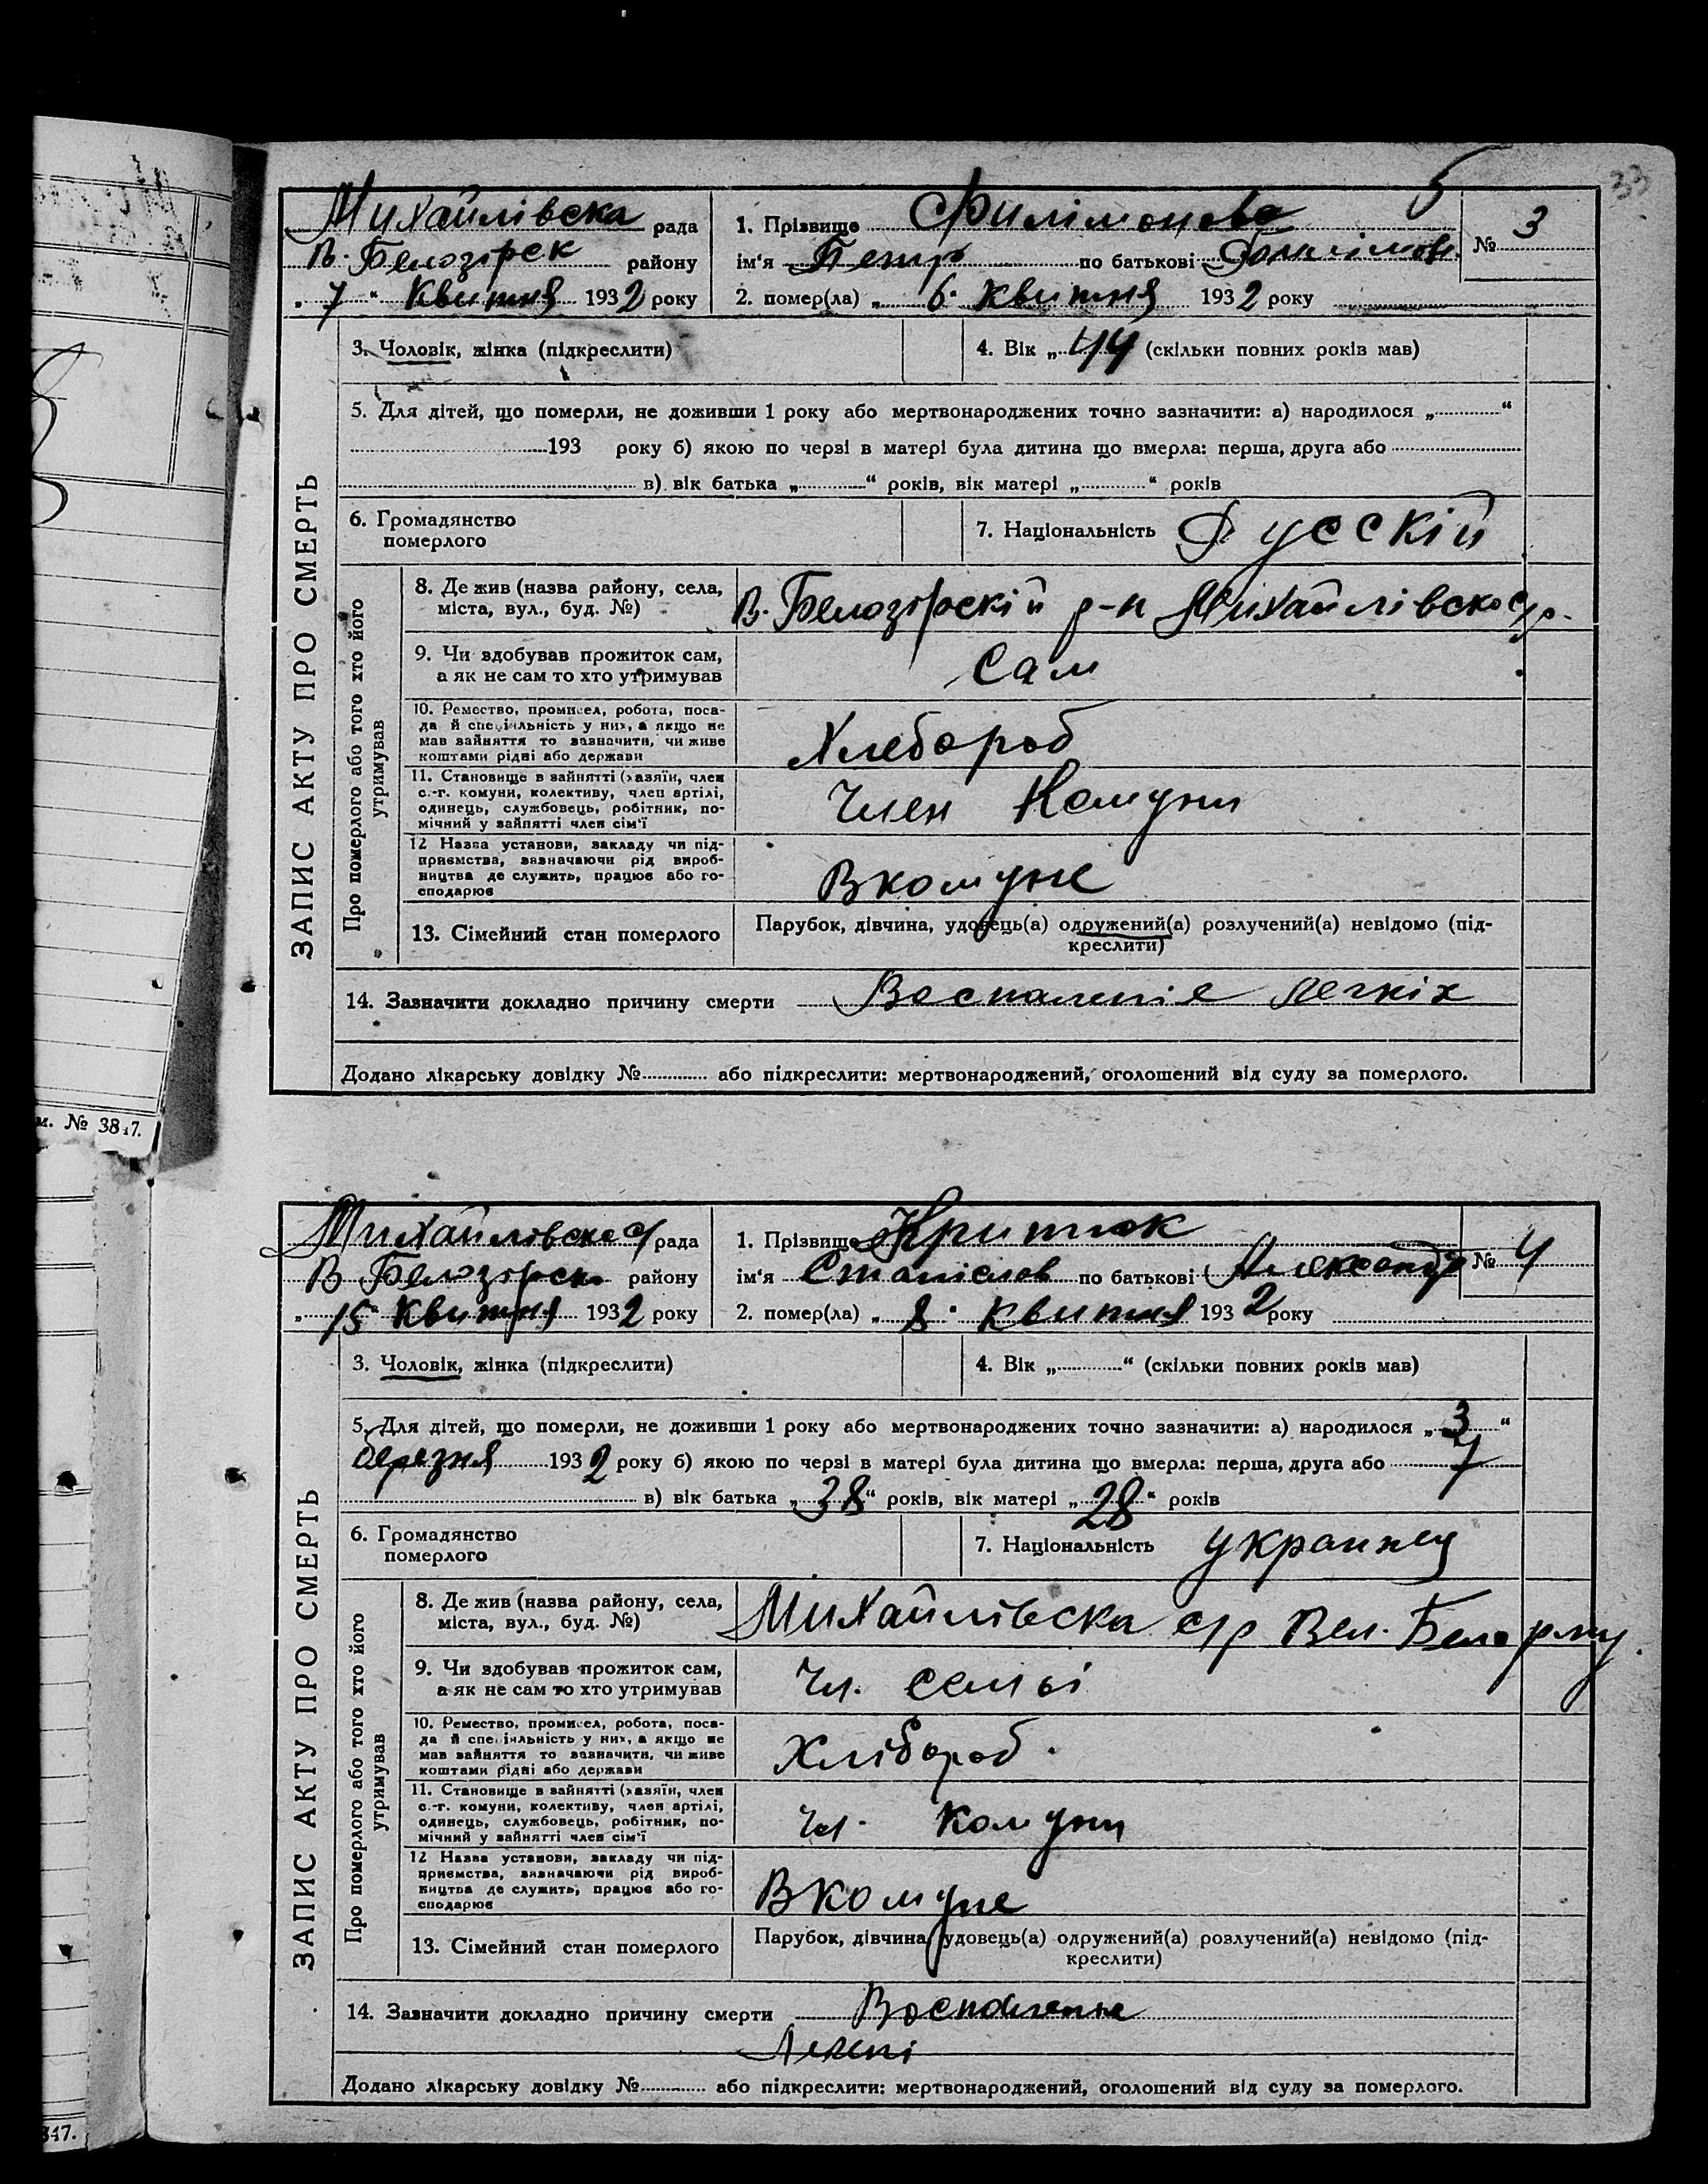 33
5
Михайлівска рада
В. Белозірск району
„ 7 “ Квитня 1932 року
1. Прізвище Филімонова
ім‘я Петр по батькові
2. помер(ла) „ 6 “ Квитня 1932 року
№ 3
ЗАПИС АКТУ ПРО СМЕРТЬ
3. Чоловік, жінка (підкреслити)
4. Вік „ 44 (скільки повних років мав)
5. Для дітей, що померли, не доживши 1 року або мертвонароджених точно зазначити: а) народилося „ “
193 року б) якою по черзі в матері була дитина що вмерла: перша, друга або
в) вік батька „ “ років, вік матері „ “ років
6. Громадянство
померлого
7. Національність Русскій
Про померлого або того хто його
утримував
8. Де жив (назва району, села,
міста, вул., буд. №)
В. Белозірскій р-н Михайлівско с/р.
9. Чи здобував прожиток сам,
а як не сам то хто утримував
Сам
10. Ремество, промисел, робота, поса-
да й спеціяльність у них, а якщо не
мав зайняття то зазначити, чи живе
коштами рідні або держави
Хлебороб
11. Становище в зайнятті (хазяїн, член
с.-г. комуни, колективу, член артілі,
одинець, службовець, робітник, по-
мічний у зайнятті член сім‘ї
Член Комуни
12 Назва установи, закладу чи під-
приємства, зазначаючи рід вироб-
ництва де служить, працює або го-
сподарює
В комуне
13. Сімейний стан померлого
Парубок, дівчина, удовець(а) одружений(а) розлучений(а) невідомо (під-
креслити)
14. Зазначити докладно причину смерти Воспаленіе легкіх
Додано лікарську довідку № або підкреслити: мертвонароджений, оголошений від суду за померлого.
м. № 3817.
Михайлівска с/рада
В Белозірск району
„ 15 “ Квитня 1932 року
1. Прізвище Критюк
ім‘я Станіслов по батькові Александр
2. помер(ла) „ 8 “ Квитня 1932 року
№ 4
ЗАПИС АКТУ ПРО СМЕРТЬ
3. Чоловік, жінка (підкреслити)
4. Вік „ “ (скільки повних років мав)
5. Для дітей, що померли, не доживши 1 року або мертвонароджених точно зазначити: а) народилося „ 3 “
березня 1932 року б) якою по черзі в матері була дитина що вмерла: перша, друга або 7
в) вік батька „ 38 “ років, вік матері „ 28 “ років
6. Громадянство
померлого
7. Національність украинец
Про померлого або того хто його
утримував
8. Де жив (назва району, села,
міста, вул., буд. №)
Михайлівска с/р Вел. Бело
9. Чи здобував прожиток сам,
а як не сам то хто утримував
Чл. семьі
10. Ремество, промисел, робота, поса-
да й спеціяльність у них, а якщо не
мав зайняття то зазначити, чи живе
коштами рідні або держави
Хлібороб.
11. Становище в зайнятті (хазяїн, член
с.-г. комуни, колективу, член артілі,
одинець, службовець, робітник, по-
мічний у зайнятті член сім‘ї
Чл. Комуни
12 Назва установи, закладу чи під-
приємства, зазначаючи рід вироб-
ництва де служить, працює або го-
сподарює
В комуне
13. Сімейний стан померлого
Парубок, дівчина, удовець(а) одружений(а) розлучений(а) невідомо (під-
креслити)
14. Зазначити докладно причину смерти Воспаление
Додано лікарську довідку № або підкреслити: мертвонароджений, оголошений від суду за померлого.